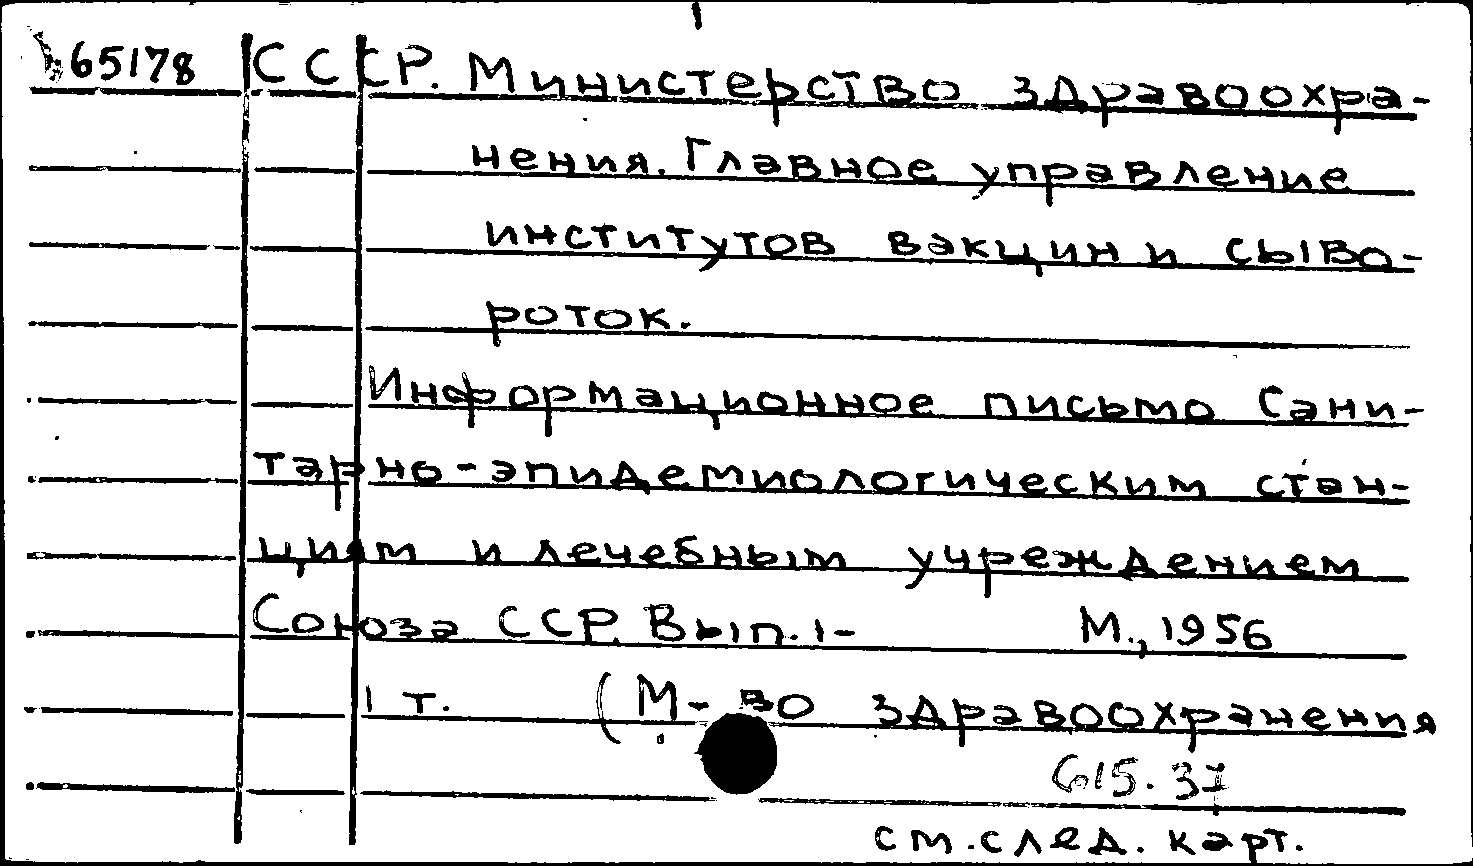 65178 СССР. Министерство здравоохра-
нения. Главное управление
институтов вакцин и сыво-
роток.
Информационное письмо Сани-
тарно-эпидемиологическим стан-
циям и лечебным учреждением
Союза ССР. Вып. 1- М., 1956
1 т. (М-во здравоохранения
615.37
см. след. карт.